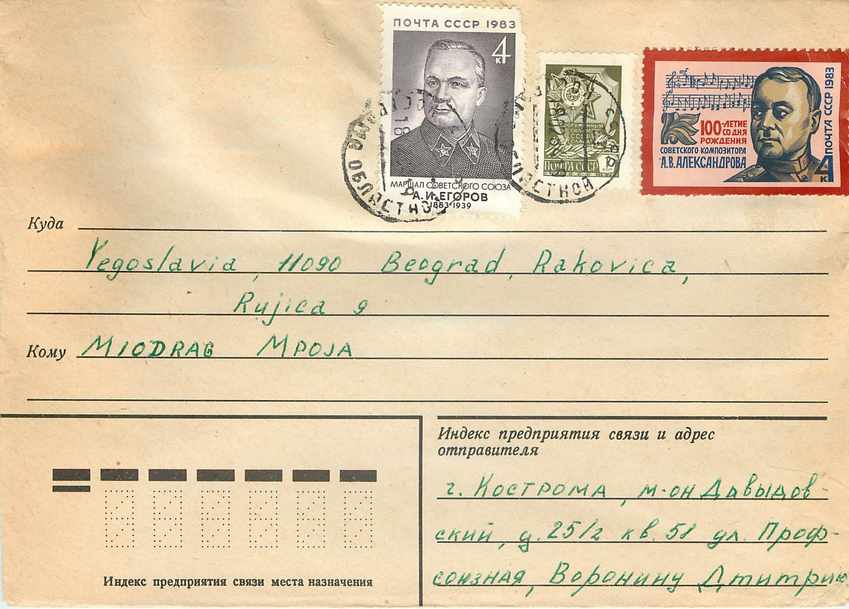 ПОЧТА СССР 1983
4 к
МАРШАЛ СОВЕТСКОГО СОЮЗА
А.И.ЕГОРОВ
1883·1939
ПОЧТА СССР
100-ЛЕТИЕ
СО ДНЯ
РОЖДЕНИЯ
СОВЕТСКОГО КОМПОЗИТОРА
А.В.АЛЕКСАНДРОВА
ПОЧТА СССР 1983
4 к
ОБЛАСТНОЙ
ОБЛАСТНОЙ
Куда
Yegoslavia, 11090 Beograd, Rakovica,
Rujica 9
Кому MIODRAG MPOJA
Индекс предприятия связи и адрес
отправителя
г. Кострома, м-он Давыдов-
ский, д. 25/2 кв. 51 ул. Проф-
союзная, Воронину Дмитрию
Индекс предприятия связи места назначения